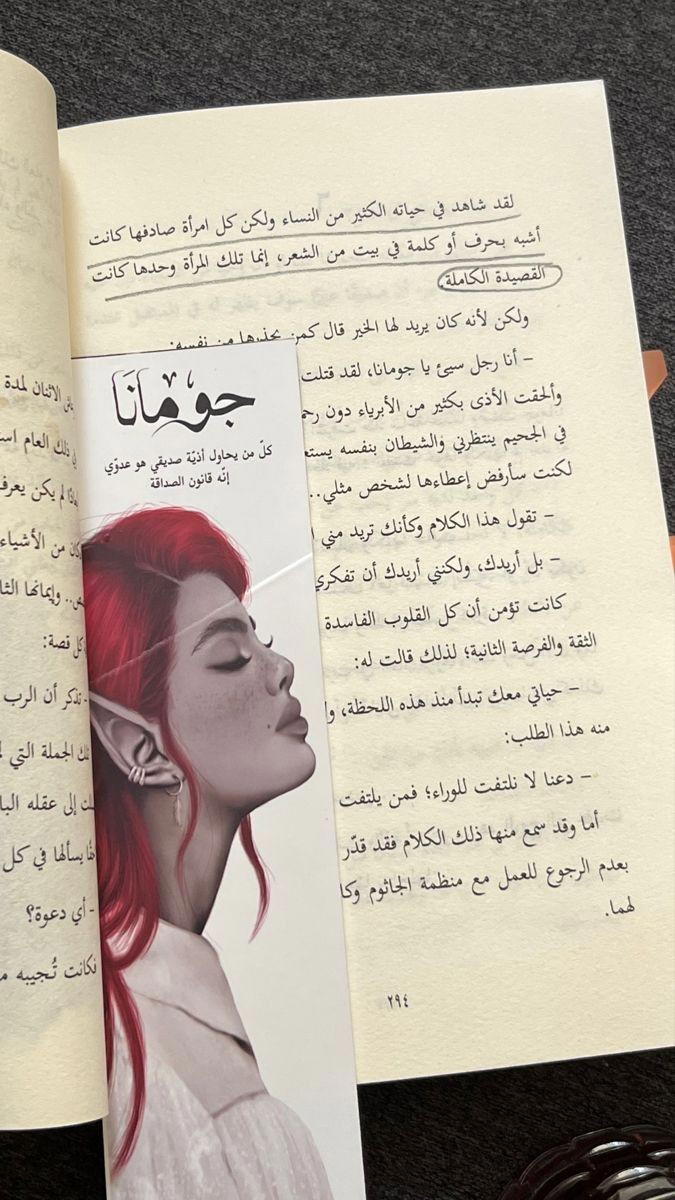 لقد شاهد في حياته الكثير من النساء ولكن كل امرأة صادفها كانت
أشبه بحرف أو كلمة في بيت من الشعر، إنما تلك المرأة وحدها كانت
القصيدة الكاملة.
ولكن لأنه كان يريد لها الخير قال كمن يحذرها من نفسه:
– أنا رجل سيئ يا جومانا، لقد قتلت
وألحقت الأذى بكثير من الأبرياء دون
في الجحيم ينتظرني والشيطان بنفسه
لكنت سأرفض إعطاءها لشخص مثلي..
– تقول هذا الكلام وكأنك تريد مني
– بل أريدك، ولكنني أريدك أن تفكري
كانت تؤمن أن كل القلوب الفاسدة
الثقة والفرصة الثانية؛ لذلك قالت له:
– حياتي معك تبدأ منذ هذه اللحظة،
منه هذا الطلب:
– دعنا لا نلتفت للوراء؛ فمن يلتفت
أما وقد سمع منها ذلك الكلام فقد قدّر
بعدم الرجوع للعمل مع منظمة الجاثوم
لهما.
٢٩٤
جومانَا
كلّ من يحاول أذيّة صديقي هو عدوّي
إنّه قانون الصداقة
الاثنان لمدة
ذلك العام
لم يكن يعرف
من الأشياء
وإيمانها
كل قصة:
- تذكر أن الرب
الجملة التي
إلى عقله
يسألها في كل
- أي دعوة؟
فكانت تُجيبه